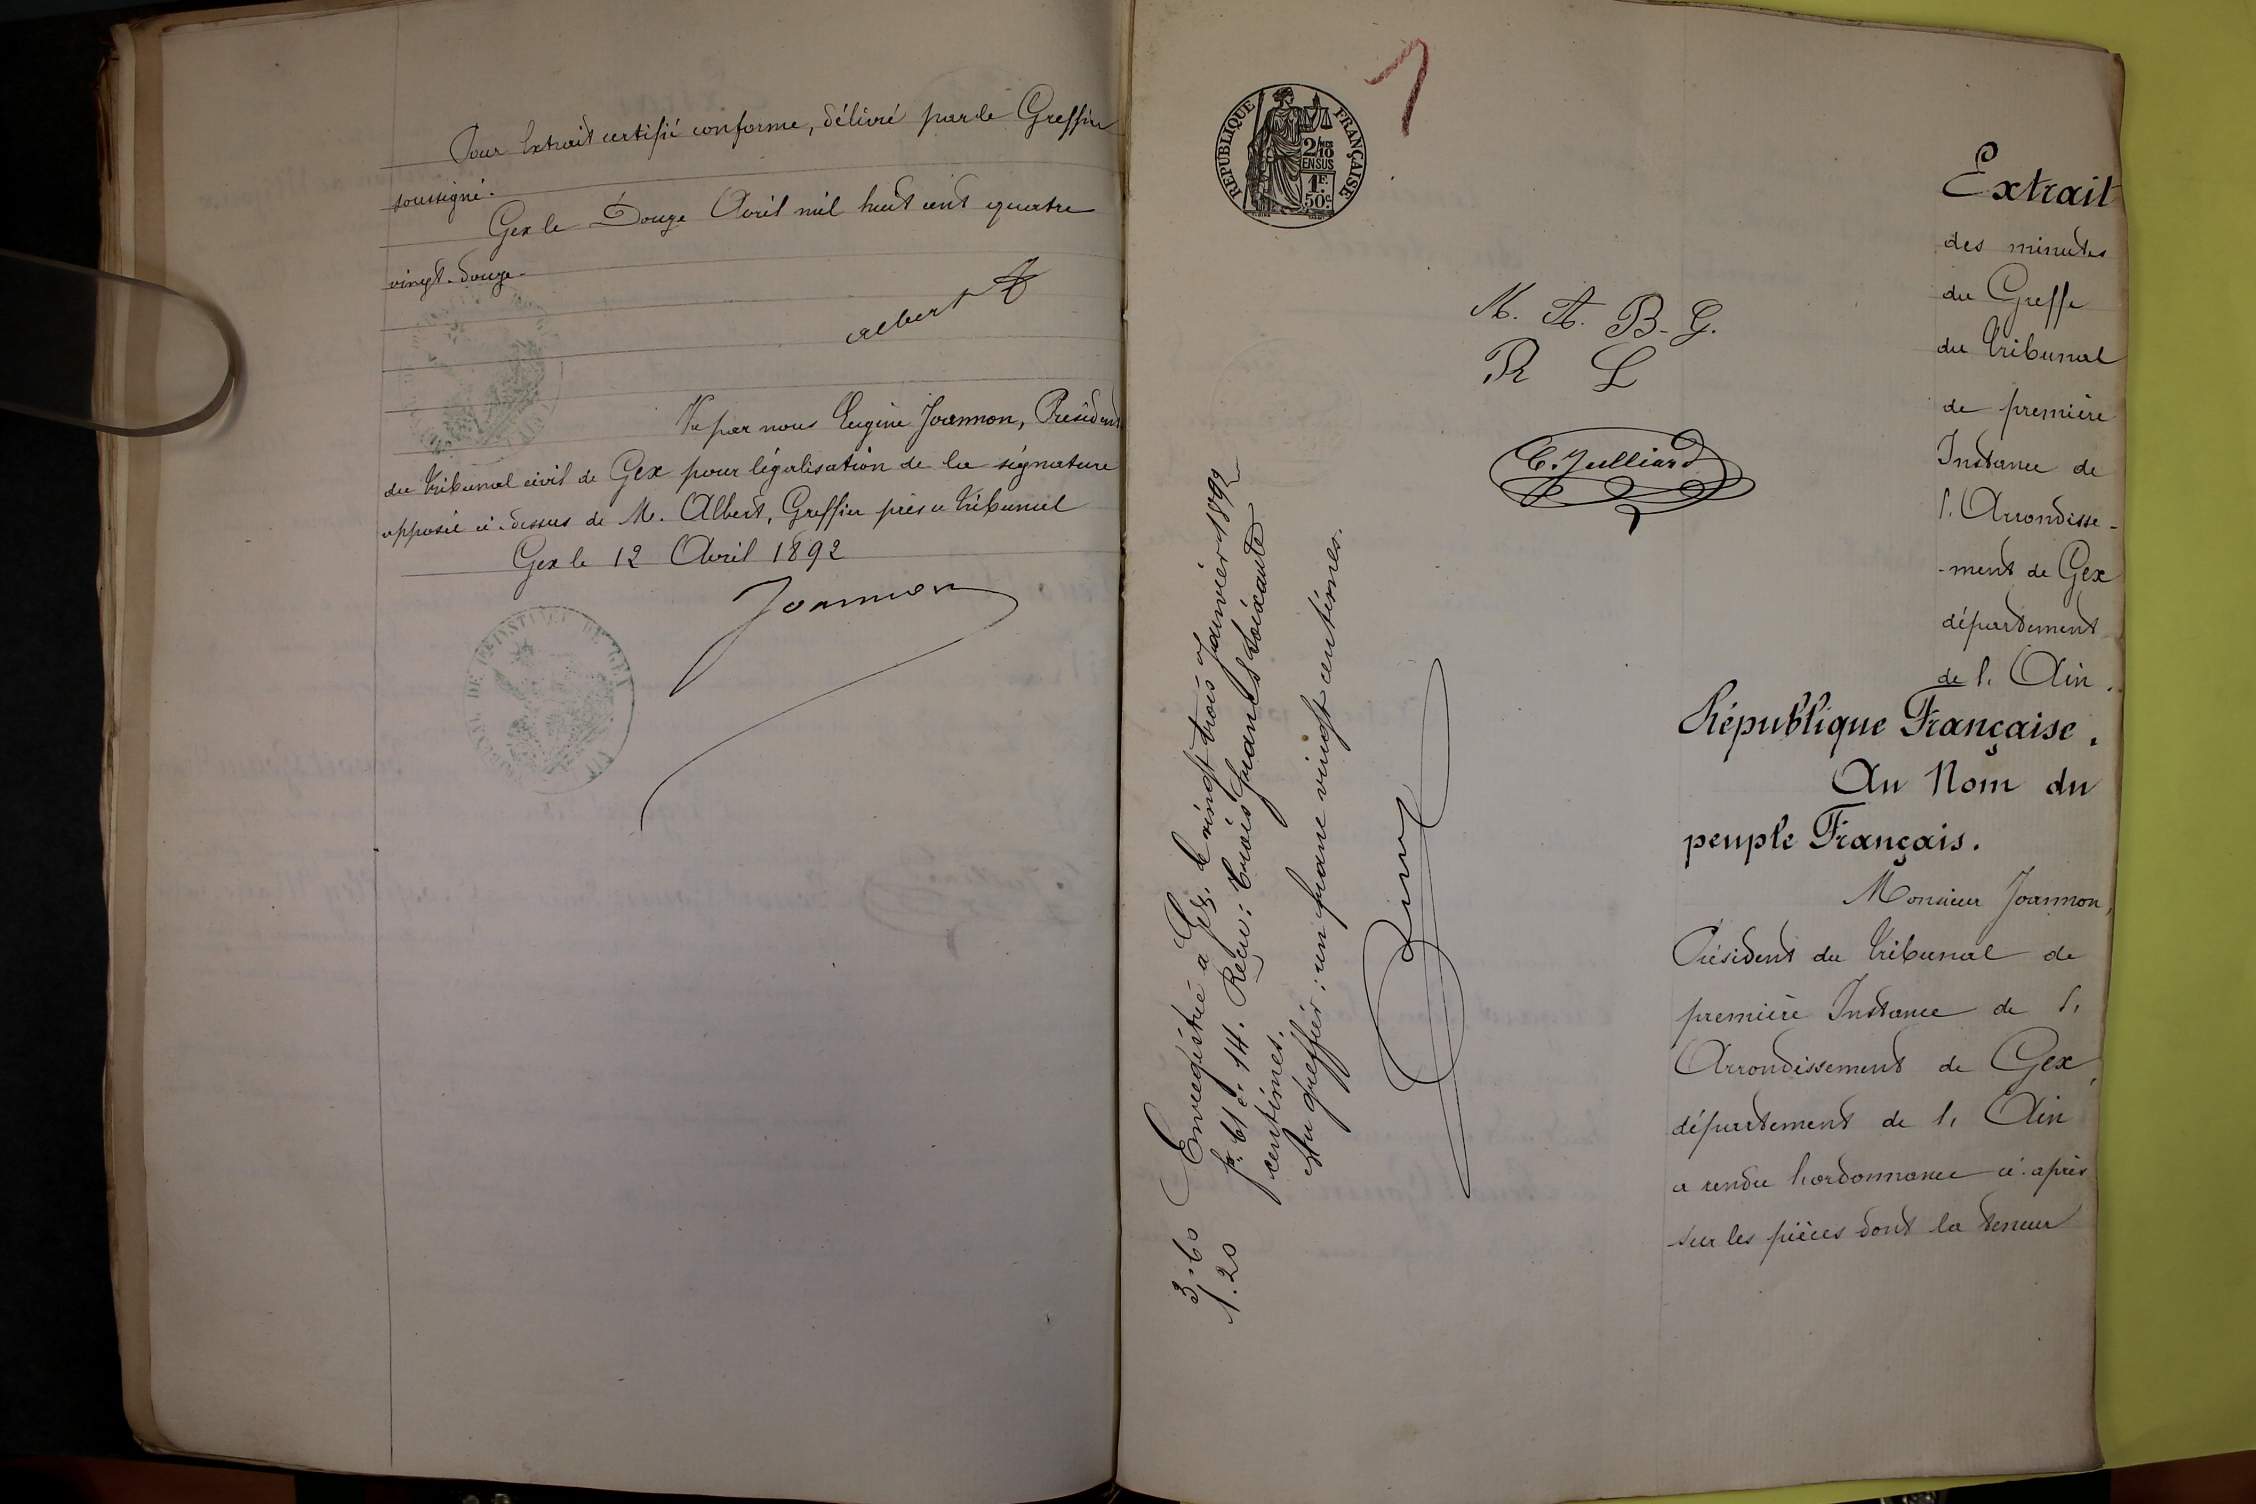 Pour Extrait certifié conforme, délivré par le Greffier
soussigné.
Gex le Douze Avril mil huit cent quatre
vingt-douze.
Albert
Vu par nous Eugène Joannon, Président
du Tribunal civil de Gex pour légalisation de la signature
apposée ci-dessus de M. Albert, Greffier près ce Tribunal
Gex le 12 Avril 1892
Joannon
RÉPUBLIQUE FRANÇAISE
2/10
EN SUS
1F
50c
M. A. B. G.
R L
C. Julliard
3,60 Enregistré à Gex, le vingt trois Janvier 1892
1.20 fo 61 c. 14. Reçu: trois francs soixante
centimes.
Au greffier: un franc vingt centimes.
Extrait
des minutes
du Greffe
du Tribunal
de première
Instance de
l'Arrondisse-
-ment de Gex
département
de l'Ain.
République Française.
Au Nom du
peuple Français.
Monsieur Joannon,
Président du Tribunal de
première Instance de l'
Arrondissement de Gex,
département de l'Ain
a rendu l'ordonnance ci-après
sur les pièces dont la teneur